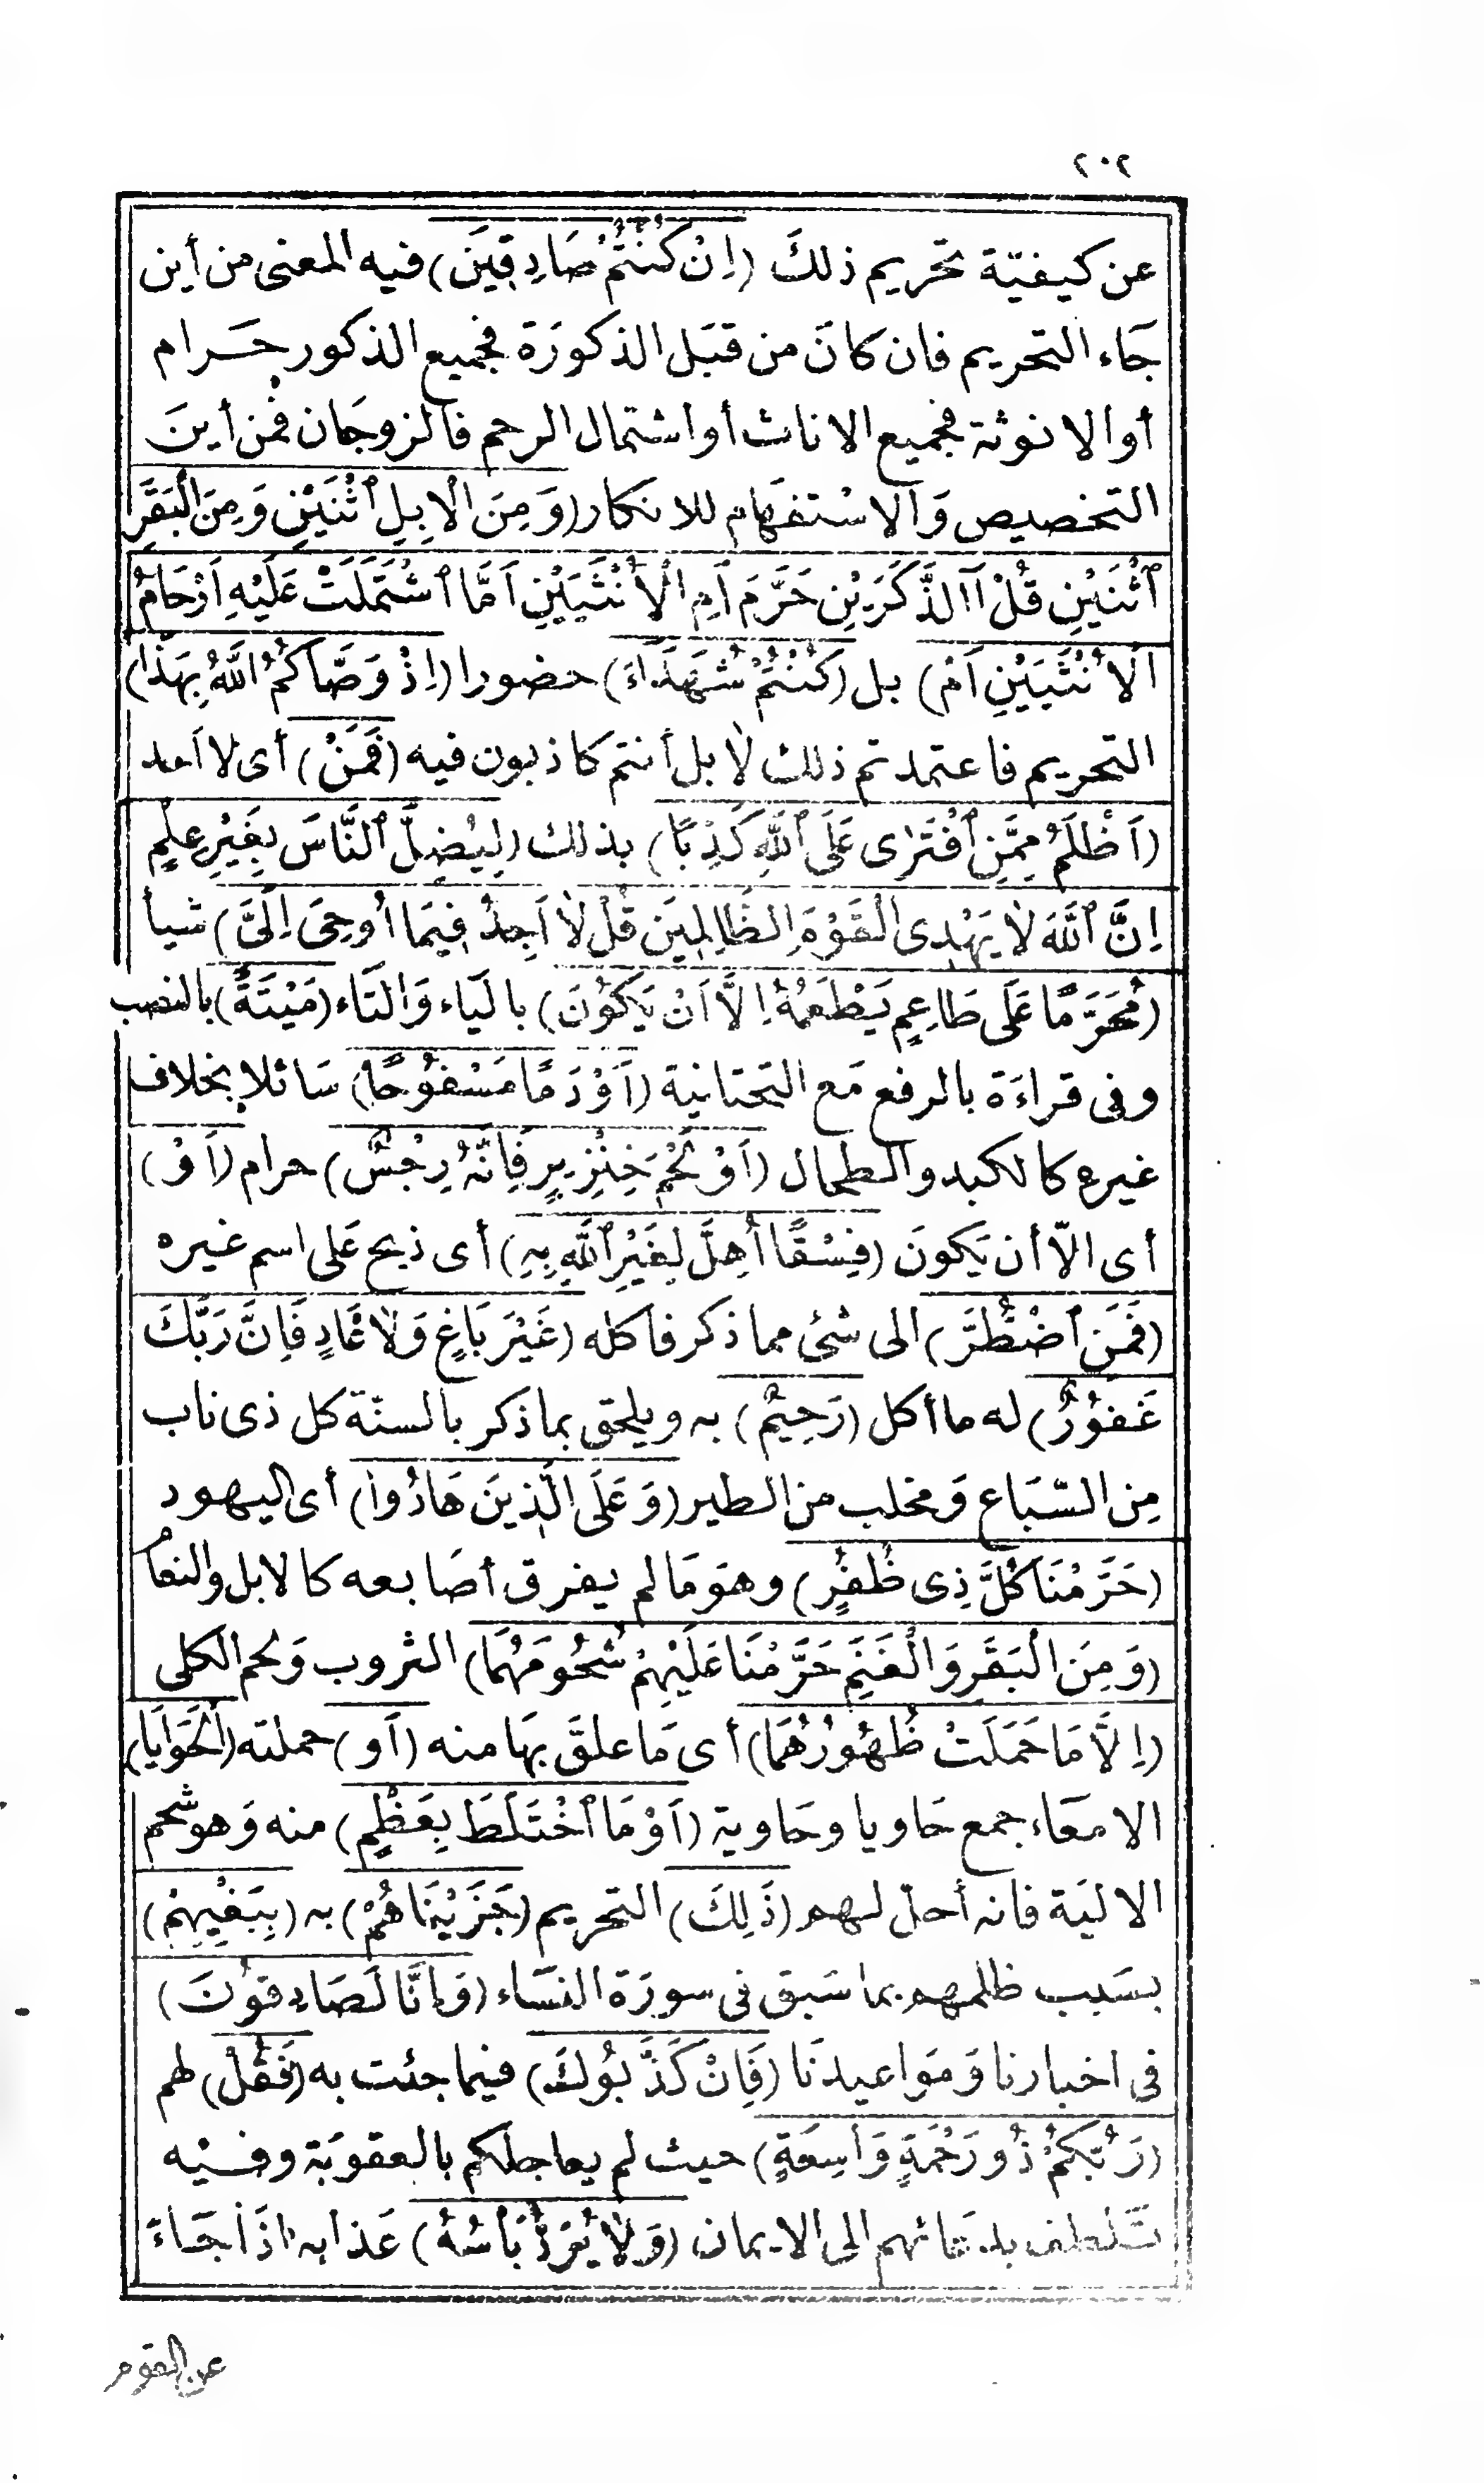 ٢٠٢
عن كيفيّة تحريم ذلكَ (اِنْ كُنْتُمْ صَادِقِينَ) فيه المعنى من أين
جَاء التحريم فان كانَ من قبَل الذكورَة فجميع الذكور حَرام
أو الانوثة فجميع الاناث أو اشتمال الرحم فالزوجَان فمن أينَ
التخصيص وَالاسْتفهَام للانكار (وَمِنَ الْاِبِلِ ٱثْنَيْنِ وَمِنَ الْبَقَرِ
ٱثْنَيْنِ قُلْ آالذَّكَرَيْنِ حَرَّمَ اَمِ الْأُنْثَيَيْنِ اَمَّا ٱشْتَمَلَتْ عَلَيْهِ اَرْحَامُ
الْأُنْثَيَيْنِ اَمْ) بل (كُنْتُمْ شُهَدَاءَ) حضورا (اِذْ وَصَّاكُمُ اللّٰهُ بِهَذَا)
التحريم فاعتمدتم ذلك لا بل أنتم كاذبون فيه (فَمَنْ) أى لا اَحد
(اَظْلَمُ مِمَّنِ ٱفْتَرٰى عَلَى ٱللّٰهِ كَذِبًا) بذلك (لِيُضِلَّ ٱلنَّاسَ بِغَيْرِ عِلْمٍ
اِنَّ ٱللّٰهَ لَا يَهْدِى الْقَوْمَ الظَّالِمِينَ قُلْ لَا اَجِدُ فِيمَا اُوحِىَ اِلَىَّ) شيأ
(مُحَرَّمًا عَلَى طَاعِمٍ يَطْعَمُهُ اِلَّا اَنْ يَكُونَ) باليَاء وَالتَاء (مَيْتَةً) بالنصب
وفى قراءَة بالرفع مَع التحتانية (اَوْ دَمًا مَسْفُوحًا) سَائلا بخلاف
غيره كالكبد والطحال (اَوْ لَحْمَ خِنْزِيرٍ فَاِنَّهُ رِجْسٌ) حرام (اَوْ)
أى الاّ أن يَكونَ (فِسْقًا اُهِلَّ لِغَيْرِ ٱللّٰهِ بِهِ) أى ذبح عَلى اسم غيره
(فَمَنِ ٱضْطُرَّ) الى شئ مما ذكر فأكله (غَيْرَ بَاغٍ وَلَا عَادٍ فَاِنَّ رَبَّكَ
غَفُورٌ) له ما أكل (رَحِيمٌ) به ويلحق بما ذكر بالسنّة كل ذى ناب
مِن السّبَاع وَمخلب من الطير (وَعَلَى الَّذِينَ هَادُوا) أى اليهود
(حَرَّمْنَا كُلَّ ذِى ظُفُرٍ) وهوَ مَا لم يفرق أصَابعه كالابل والنعام
(وَمِنَ الْبَقَرِ وَالْغَنَمِ حَرَّمْنَا عَلَيْهِمْ شُحُومَهُمَا) الثروب وَلحم الكلى
(اِلَّا مَا حَمَلَتْ ظُهُورُهُمَا) أى مَا علقَ بهَا منه (اَو) حملته (الْحَوَايَا)
الامعَاء جمع حَاويا وحَاوية (اَوْ مَا ٱخْتَلَطَ بِعَظْمٍ) منه وَهو شحم
الاليَة فانه أحلّ لهم (ذَلِكَ) التحريم (جَزَيْنَاهُمْ) به (بِبَغْيِهِمْ)
بسَبب ظلمهم بما سَبق فى سورَة النسَاء (وَاِنَّا لَصَادِقُونَ)
فى اخبارنا وَمَواعيدنَا (فَاِنْ كَذَّبُوكَ) فيما جئت به (فَقُلْ) لهم
(رَبُّكُمْ ذُو رَحْمَةٍ وَاسِعَةٍ) حيث لم يعاجلكم بالعقوبَة وفيْه
تَلطف بدعَائهم الى الايمان (وَلَا يُرَدُّ بَأْسُهُ) عَذابه اذَا جَاءَ
عن القوم